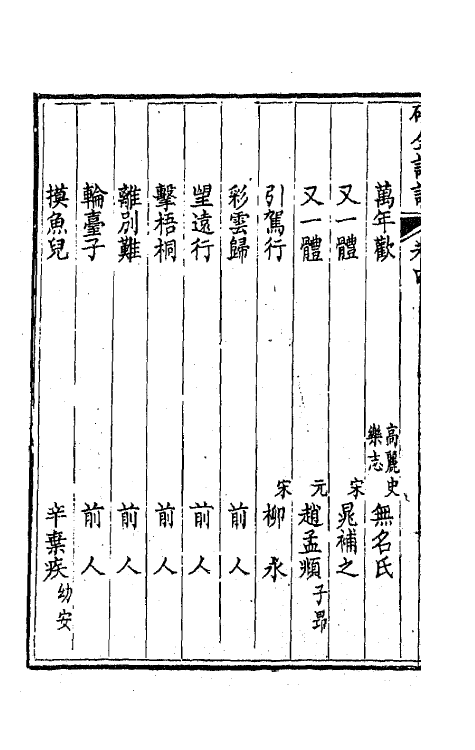 萬年歡 高麗史樂志 無名氏
又一體 宋 晁補之
又一體 元 趙孟頫 子昂
引駕行 宋 柳永
彩雲歸 前人
望遠行 前人
擊梧桐 前人
離別難 前人
輪臺子 前人
摸魚兒 辛棄疾 幼安